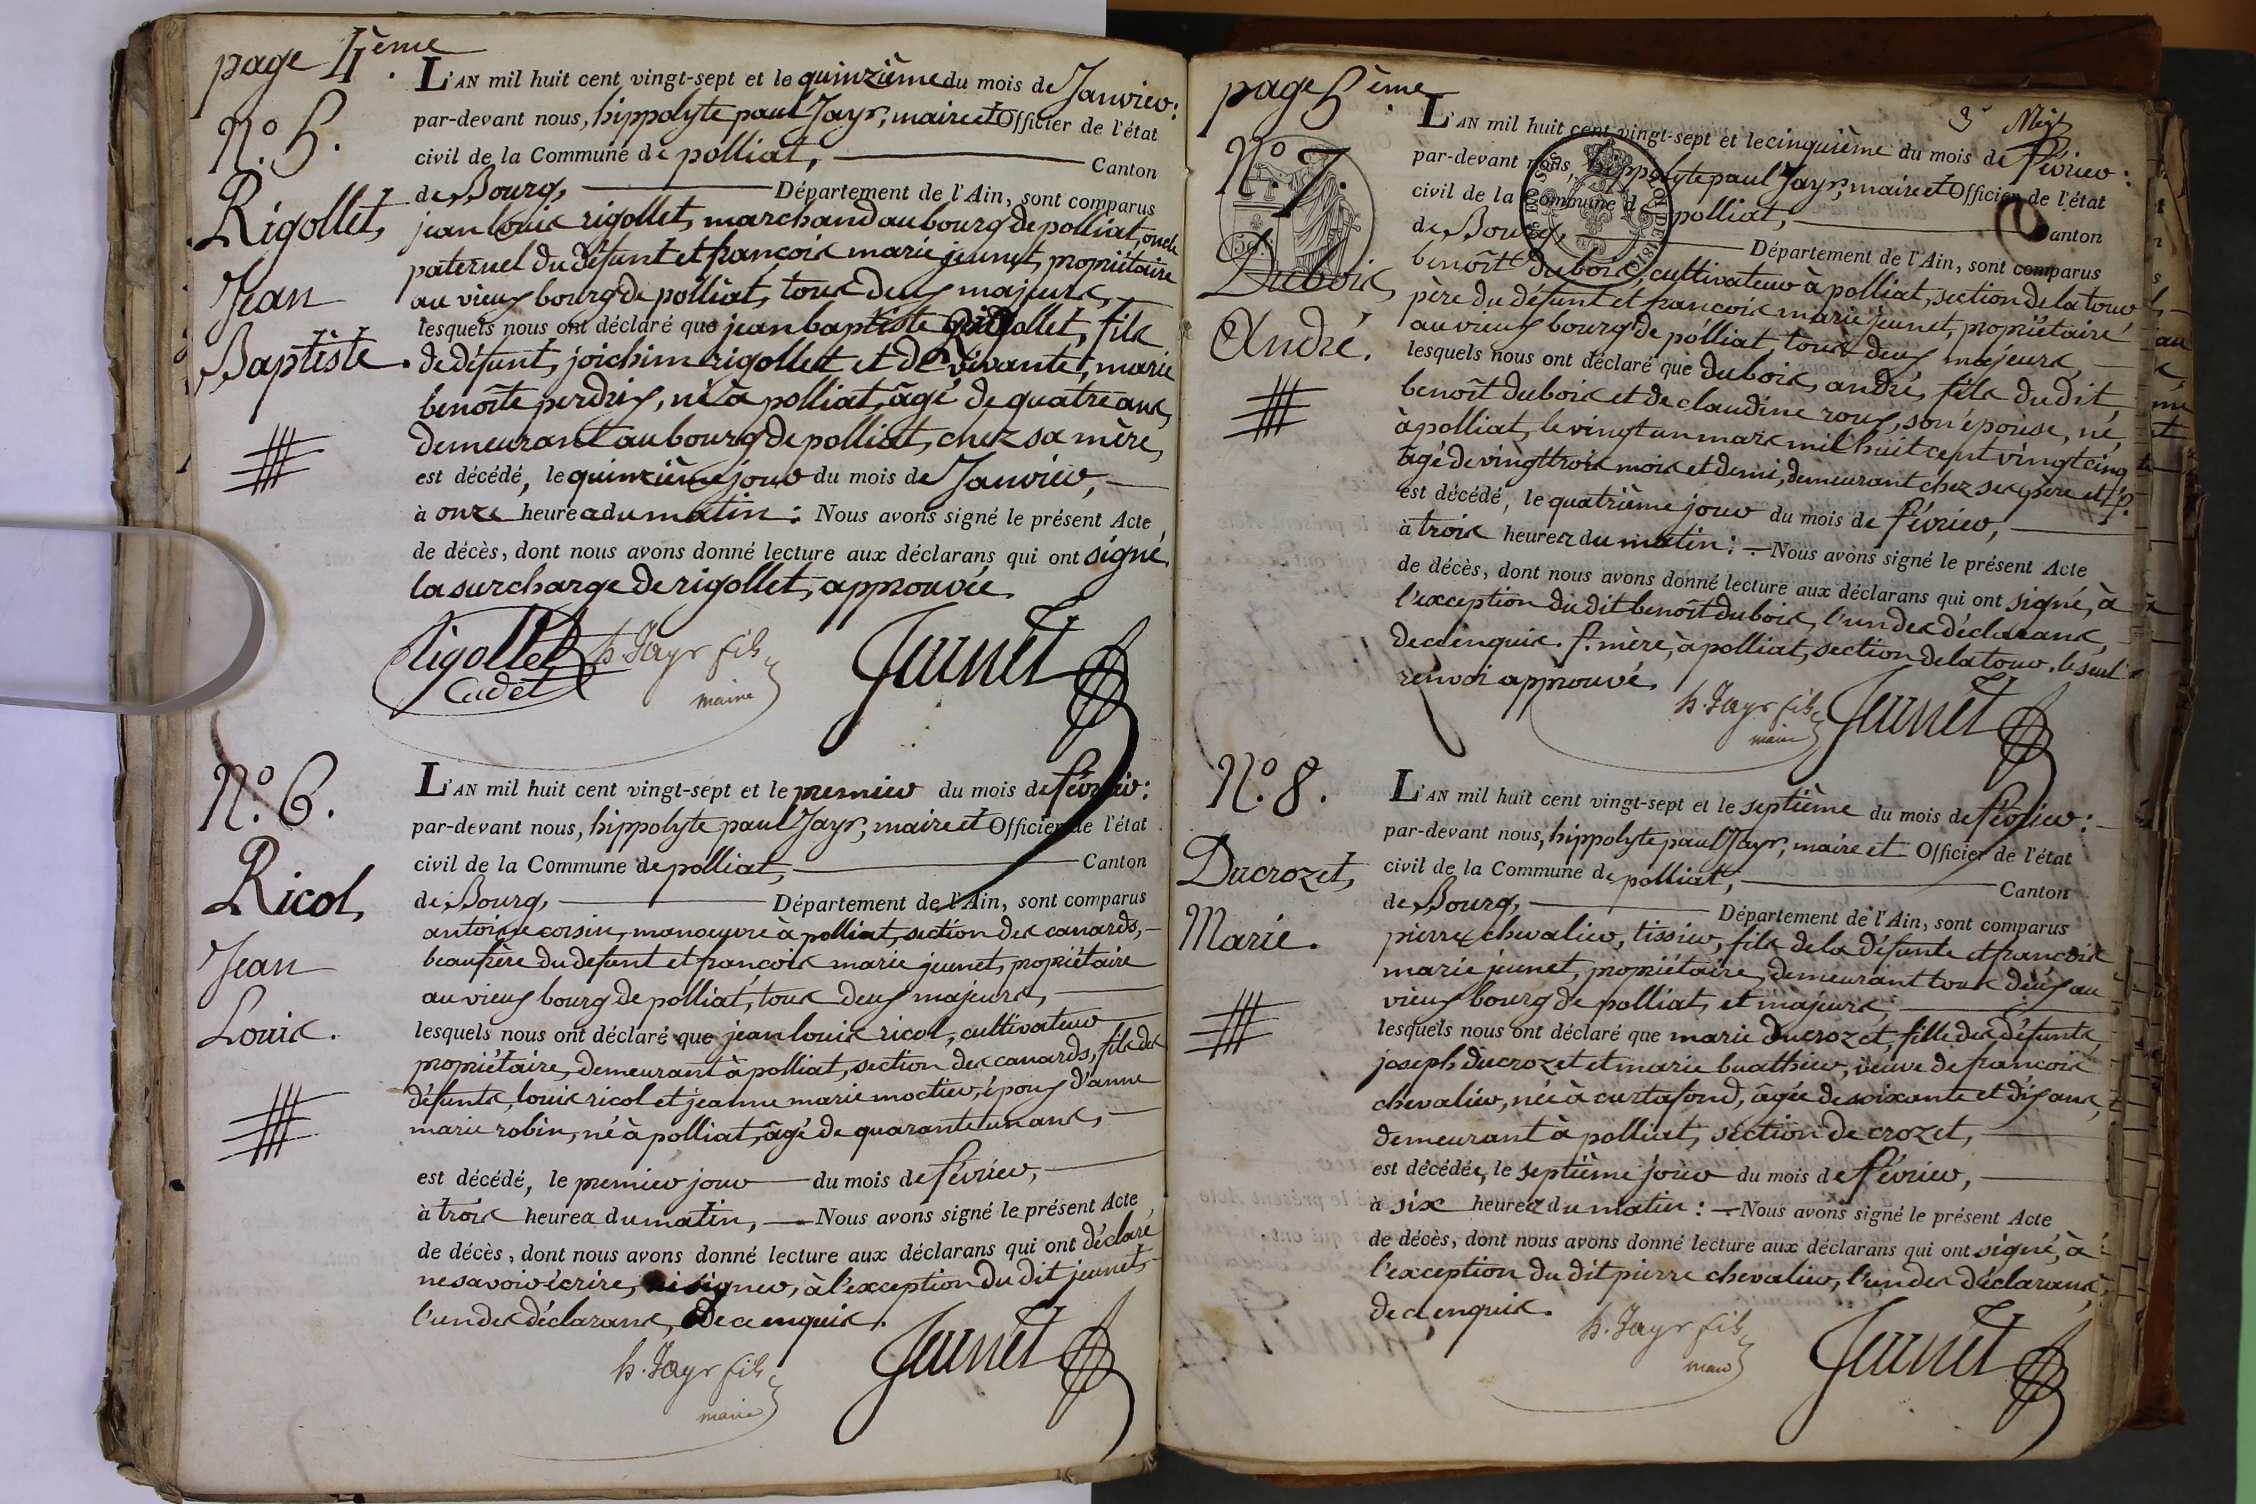 page 4ème.
N.º 5.
Rigollet,
Jean
Baptiste.
L'AN mil huit cent vingt-sept et le quinzième du mois de Janvier:
par-devant nous, hippolyte paul Jayr, maire et Officier de l'état
civil de la Commune de polliat, Canton
de Bourg, Département de l'Ain, sont comparus
jean louis rigollet, marchand au bourg de polliat, oncle
paternel du défunt et françois marie jeunet, propriétaire
au vieux bourg de polliat, tous deux majeurs,
lesquels nous ont déclaré que jean baptiste Rigollet, fils
de défunt, joichim rigollet et de vivante, marie
benoîte perdrix, né à polliat, âgé de quatre ans,
demeurant au bourg de polliat, chez sa mère,
est décédé, le quinzième jour du mois de Janvier,
à onze heures du matin: Nous avons signé le présent Acte
de décès, dont nous avons donné lecture aux déclarans qui ont signé.
la surcharge de rigollet, approuvée.
Rigollet
Cadet
h. Jayr fils
maire
Jeunet
N.º 6.
Ricol,
Jean
Louis.
L'AN mil huit cent vingt-sept et le premier du mois de février:
par-devant nous, hippolyte paul Jayr, maire et Officier de l'état
civil de la Commune de polliat, Canton
de Bourg, Département de l'Ain, sont comparus
antoine corsin, manoeuvre à polliat, section des canards,
beaufrère du defunt et françois marie jeunet, propriétaire
au vieux bourg de polliat, tous deux majeurs,
lesquels nous ont déclaré que jean louis ricol, cultivateur
propriétaire, demeurant à polliat, section des canards, fils des
défunts, louis ricol et jeanne marie moctier, époux d'anne
marie robin, né à polliat, âgé de quarante un ans,
est décédé, le premier jour du mois de février,
à trois heures du matin, Nous avons signé le présent Acte
de décès, dont nous avons donné lecture aux déclarans qui ont déclaré
ne savoir écrire, ni signer, à l'exception du dit jeunet,
l'un des déclarans, de ce enquis.
h. Jayr fils
maire
Jeunet
page 5ème
N.º 7.
Dubois,
André.
L'AN mil huit cent vingt-sept et le cinquième du mois de février:
par-devant nous, hippolyte paul Jayr, maire et Officier de l'état
civil de la Commune de polliat, Canton
de Bourg, Département de l'Ain, sont comparus
benoît dubois, cultivateur à polliat, section de la tour
père du défunt et françois marie jeunet, propriétaire
au vieux bourg de polliat, tous deux majeurs,
lesquels nous ont déclaré que dubois, andré, fils du dit,
benoît dubois et de claudine roux, son épouse, né,
à polliat, le vingt un mars mil huit cent vingt cinq
âgé de vingt trois mois et demi, demeurant chez ses père et f.
est décédé, le quatrième jour du mois de février,
à trois heures du matin: Nous avons signé le présent Acte
de décès, dont nous avons donné lecture aux déclarans qui ont signé, à
l'exception du dit benoît dubois, l'un des déclarans,
de ce enquis. f. mère, à polliat, section de la tour. le seul
renvoi approuvé.
h. Jayr fils
maire
Jeunet
N.º 8.
Ducrozet,
Marie.
L'AN mil huit cent vingt-sept et le septième du mois de février:
par-devant nous, hippolyte paul Jayr, maire et Officier de l'état
civil de la Commune de polliat, Canton
de Bourg, Département de l'Ain, sont comparus
pierre chevalier, tissier, fils de la défunte et françois
marie jeunet, propriétaire, demeurant tous deux au
vieux bourg de polliat, et majeurs,
lesquels nous ont déclaré que marie ducrozet, fille des défunts,
joseph ducrozet et marie buathier, veuve de françois
chevalier, née à curtafond, âgée de soixante et dix ans,
demeurant à polliat, section de crozet,
est décédée, le septième jour du mois de février,
à six heures du matin: Nous avons signé le présent Acte
de décès, dont nous avons donné lecture aux déclarans qui ont signé, à
l'exception du dit pierre chevalier, l'un des déclarans,
de ce enquis.
h. Jayr fils
maire
Jeunet